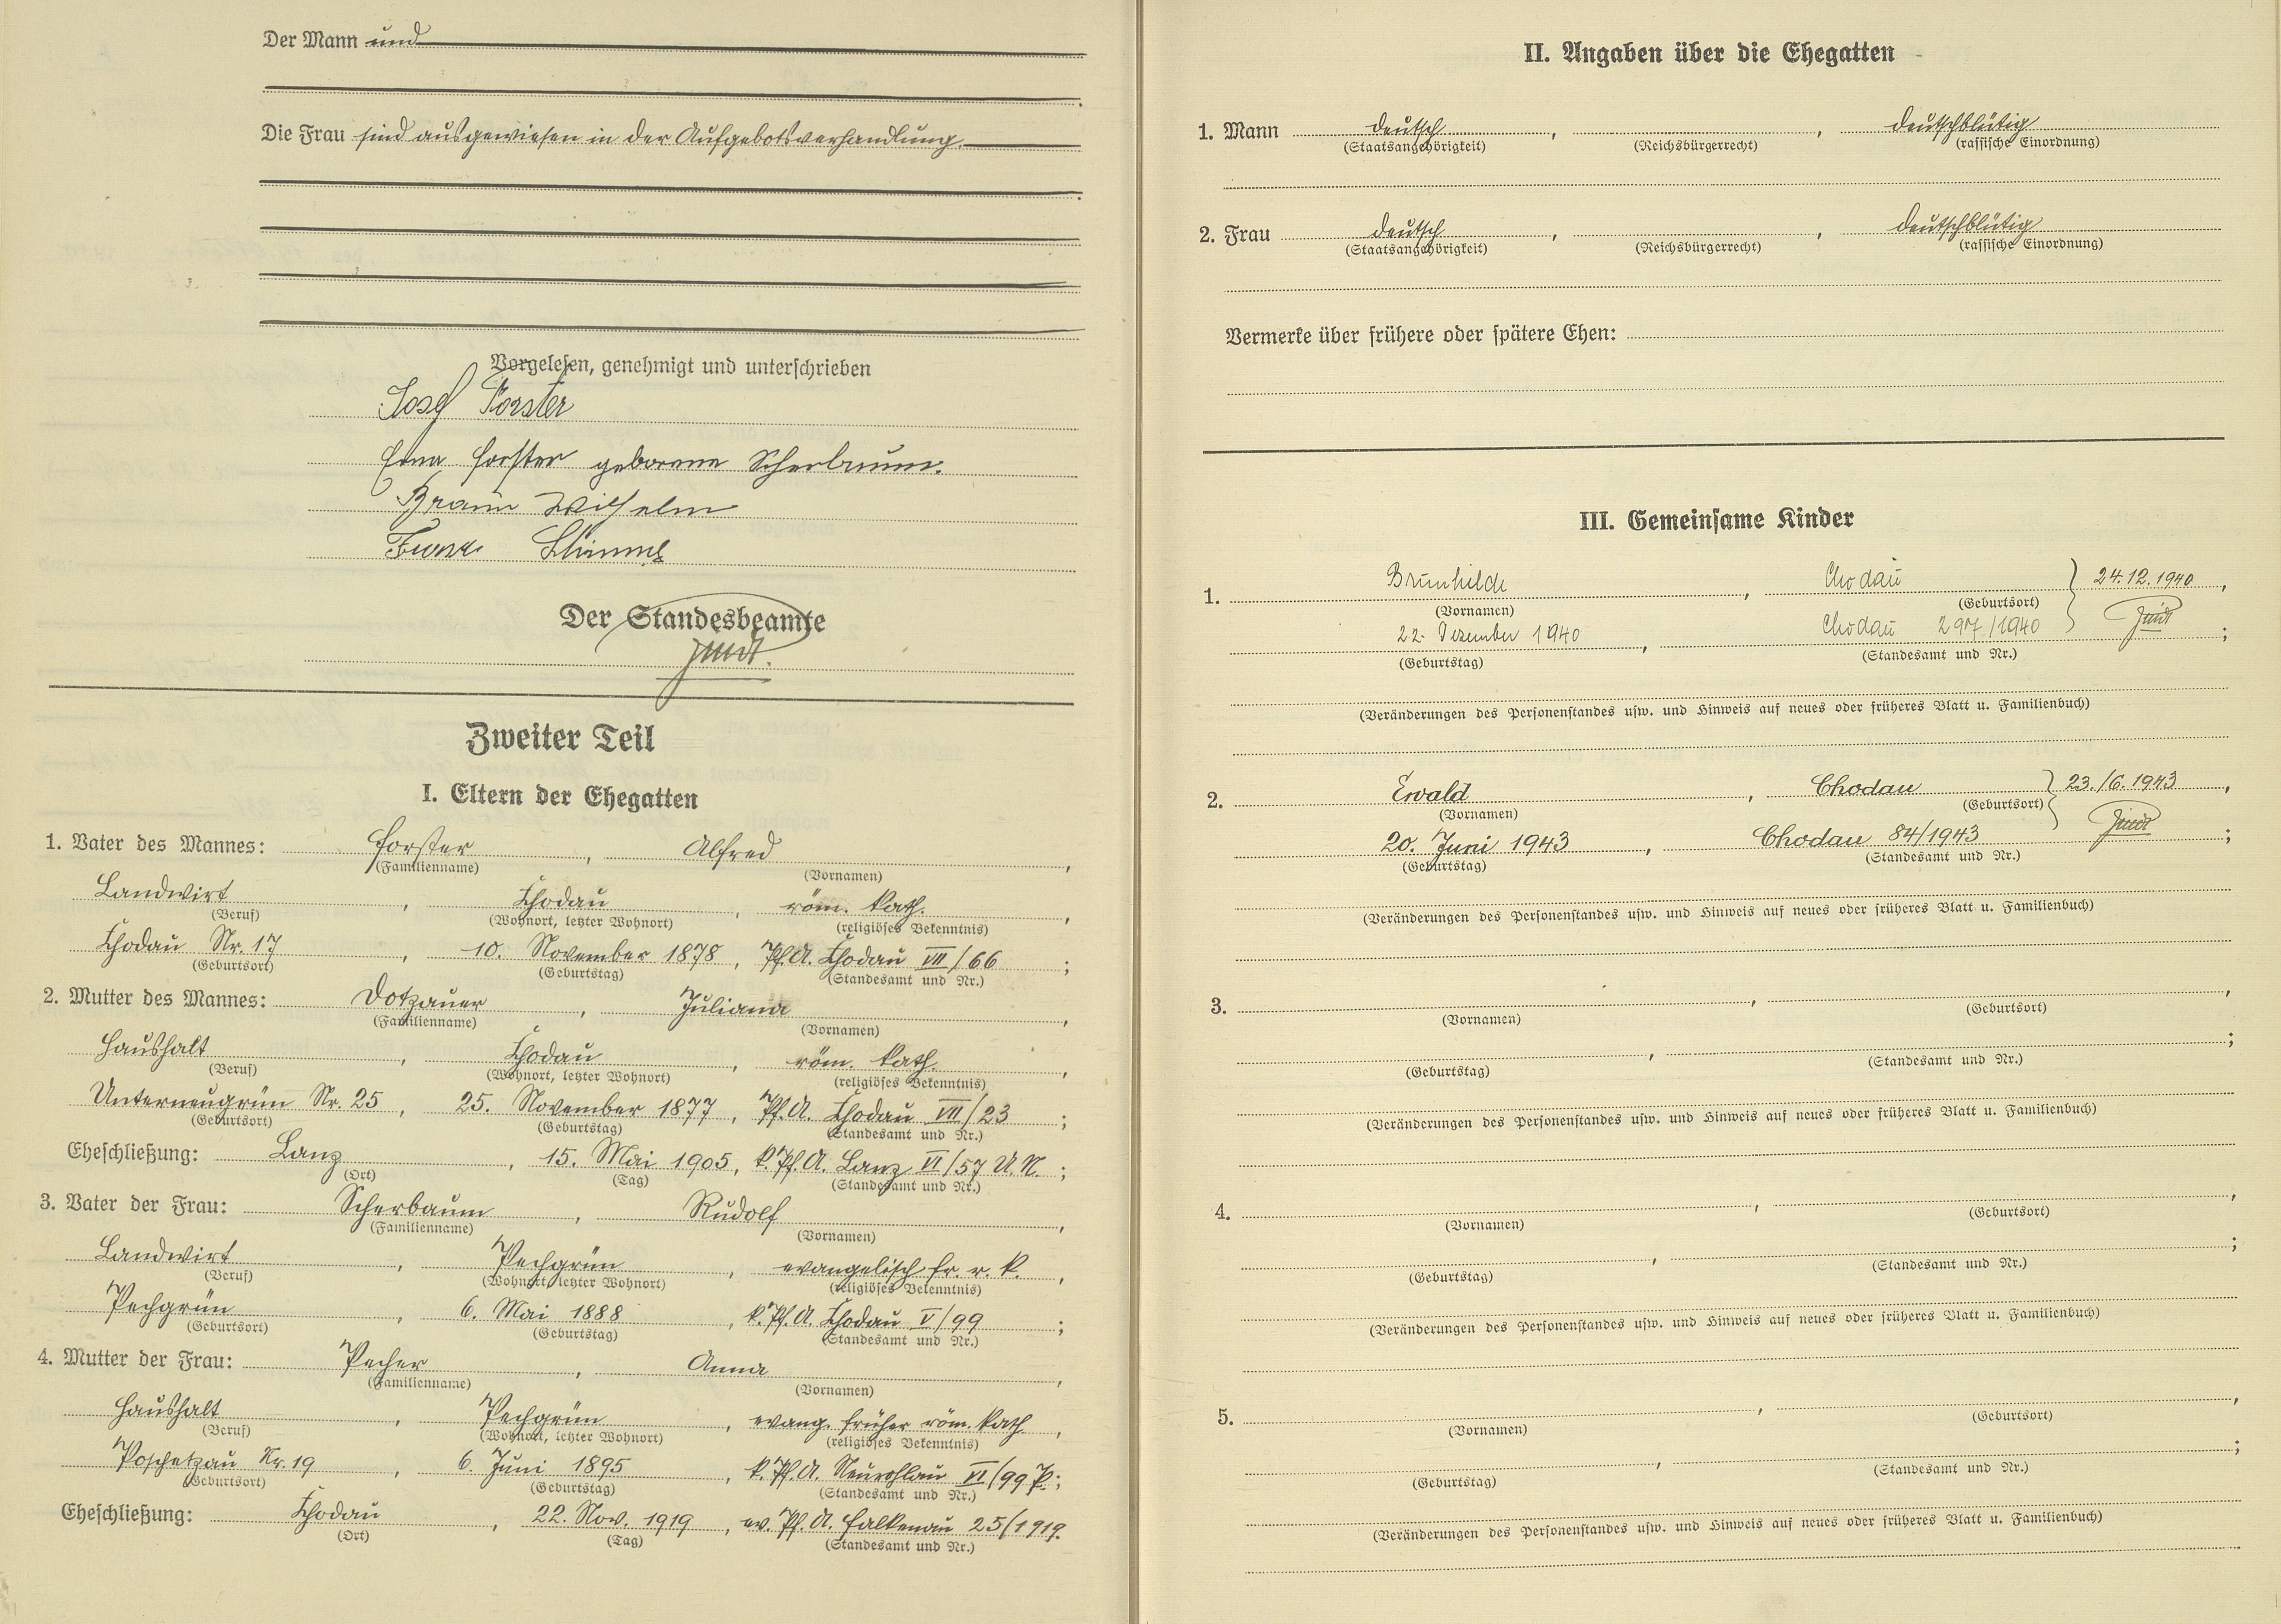 Der Mann und
Die Frau sind ausgewiesen in der Aufgebotsverhandlung.
Vorgelesen, genehmigt und unterschrieben
Josef Forster
Erna Forster geborene Scherbaum.
Braun Wilhelm
Der Standesbeamte
Zweiter Teil
I. Eltern der Ehegatten
1. Vater des Mannes: Forster, Alfred,
(Familienname) (Vornamen)
Landwirt, Chodau, röm. kath.,
(Beruf) (Wohnort, letzter Wohnort) (religiöses Bekenntnis)
Chodau Nr. 17, 10. November 1878, Pf. A. Chodau VIII/66;
(Geburtsort) (Geburtstag) (Standesamt und Nr.)
2. Mutter des Mannes: Dotzauer, Juliana,
(Familienname) (Vornamen)
Haushalt, Chodau, röm. kath.,
(Beruf) (Wohnort, letzter Wohnort) (religiöses Bekenntnis)
Unterneugrün Nr. 25, 25. November 1877, Pf. A. Chodau VII/23;
(Geburtsort) (Geburtstag) (Standesamt und Nr.)
Eheschließung: Lanz, 15. Mai 1905, k. Pf. A. Lanz VI/57 U. N.;
(Ort) (Tag) (Standesamt und Nr.)
3. Vater der Frau: Scherbaum, Rudolf,
(Familienname) (Vornamen)
Landwirt, Pechgrün, evangelisch fr. r. k.,
(Beruf) (Wohnort, letzter Wohnort) (religiöses Bekenntnis)
Pechgrün, 6. Mai 1888, k. Pf. A. Chodau V/99;
(Geburtsort) (Geburtstag) (Standesamt und Nr.)
4. Mutter der Frau: Pecher, Anna,
(Familienname) (Vornamen)
Haushalt, Pechgrün, evang. früher röm. kath,
(Beruf) (Wohnort, letzter Wohnort) (religiöses Bekenntnis)
Poschetzau Nr. 19, 6. Juni 1895, k. Pf. A. Neurohlau VI/99 P.;
(Geburtsort) (Geburtstag) (Standesamt und Nr.)
Eheschließung: Chodau, 22. Nov. 1919, ev. Pf. A. Falkenau 25/1919.
(Ort) (Tag) (Standesamt und Nr.)
II. Angaben über die Ehegatten
1. Mann deutsch, , deutschblütig
(Staatsangehörigkeit) (Reichsbürgerrecht) (rassische Einordnung)
2. Frau deutsch, , deutschblütig
(Staatsangehörigkeit) (Reichsbürgerrecht) (rassische Einordnung)
Vermerke über frühere oder spätere Ehen:
III. Gemeinsame Kinder
1. Brunhilde, Chodau } 24.12.1940,
(Vornamen) (Geburtsort)
22. Dezember 1940, Chodau 297/1940;
(Geburtstag) (Standesamt und Nr.)
(Veränderungen des Personenstandes usw. und Hinweis auf neues oder früheres Blatt u. Familienbuch)
2. Ewald, Chodau } 23./6.1943,
(Vornamen) (Geburtsort)
20. Juni 1943, Chodau 84/1943;
(Geburtstag) (Standesamt und Nr.)
(Veränderungen des Personenstandes usw. und Hinweis auf neues oder früheres Blatt u. Familienbuch)
3. , ,
(Vornamen) (Geburtsort)
, ;
(Geburtstag) (Standesamt und Nr.)
(Veränderungen des Personenstandes usw. und Hinweis auf neues oder früheres Blatt u. Familienbuch)
4. , ,
(Vornamen) (Geburtsort)
, ;
(Geburtstag) (Standesamt und Nr.)
(Veränderungen des Personenstandes usw. und Hinweis auf neues oder früheres Blatt u. Familienbuch)
5. , ,
(Vornamen) (Geburtsort)
, ;
(Geburtstag) (Standesamt und Nr.)
(Veränderungen des Personenstandes usw. und Hinweis auf neues oder früheres Blatt u. Familienbuch)